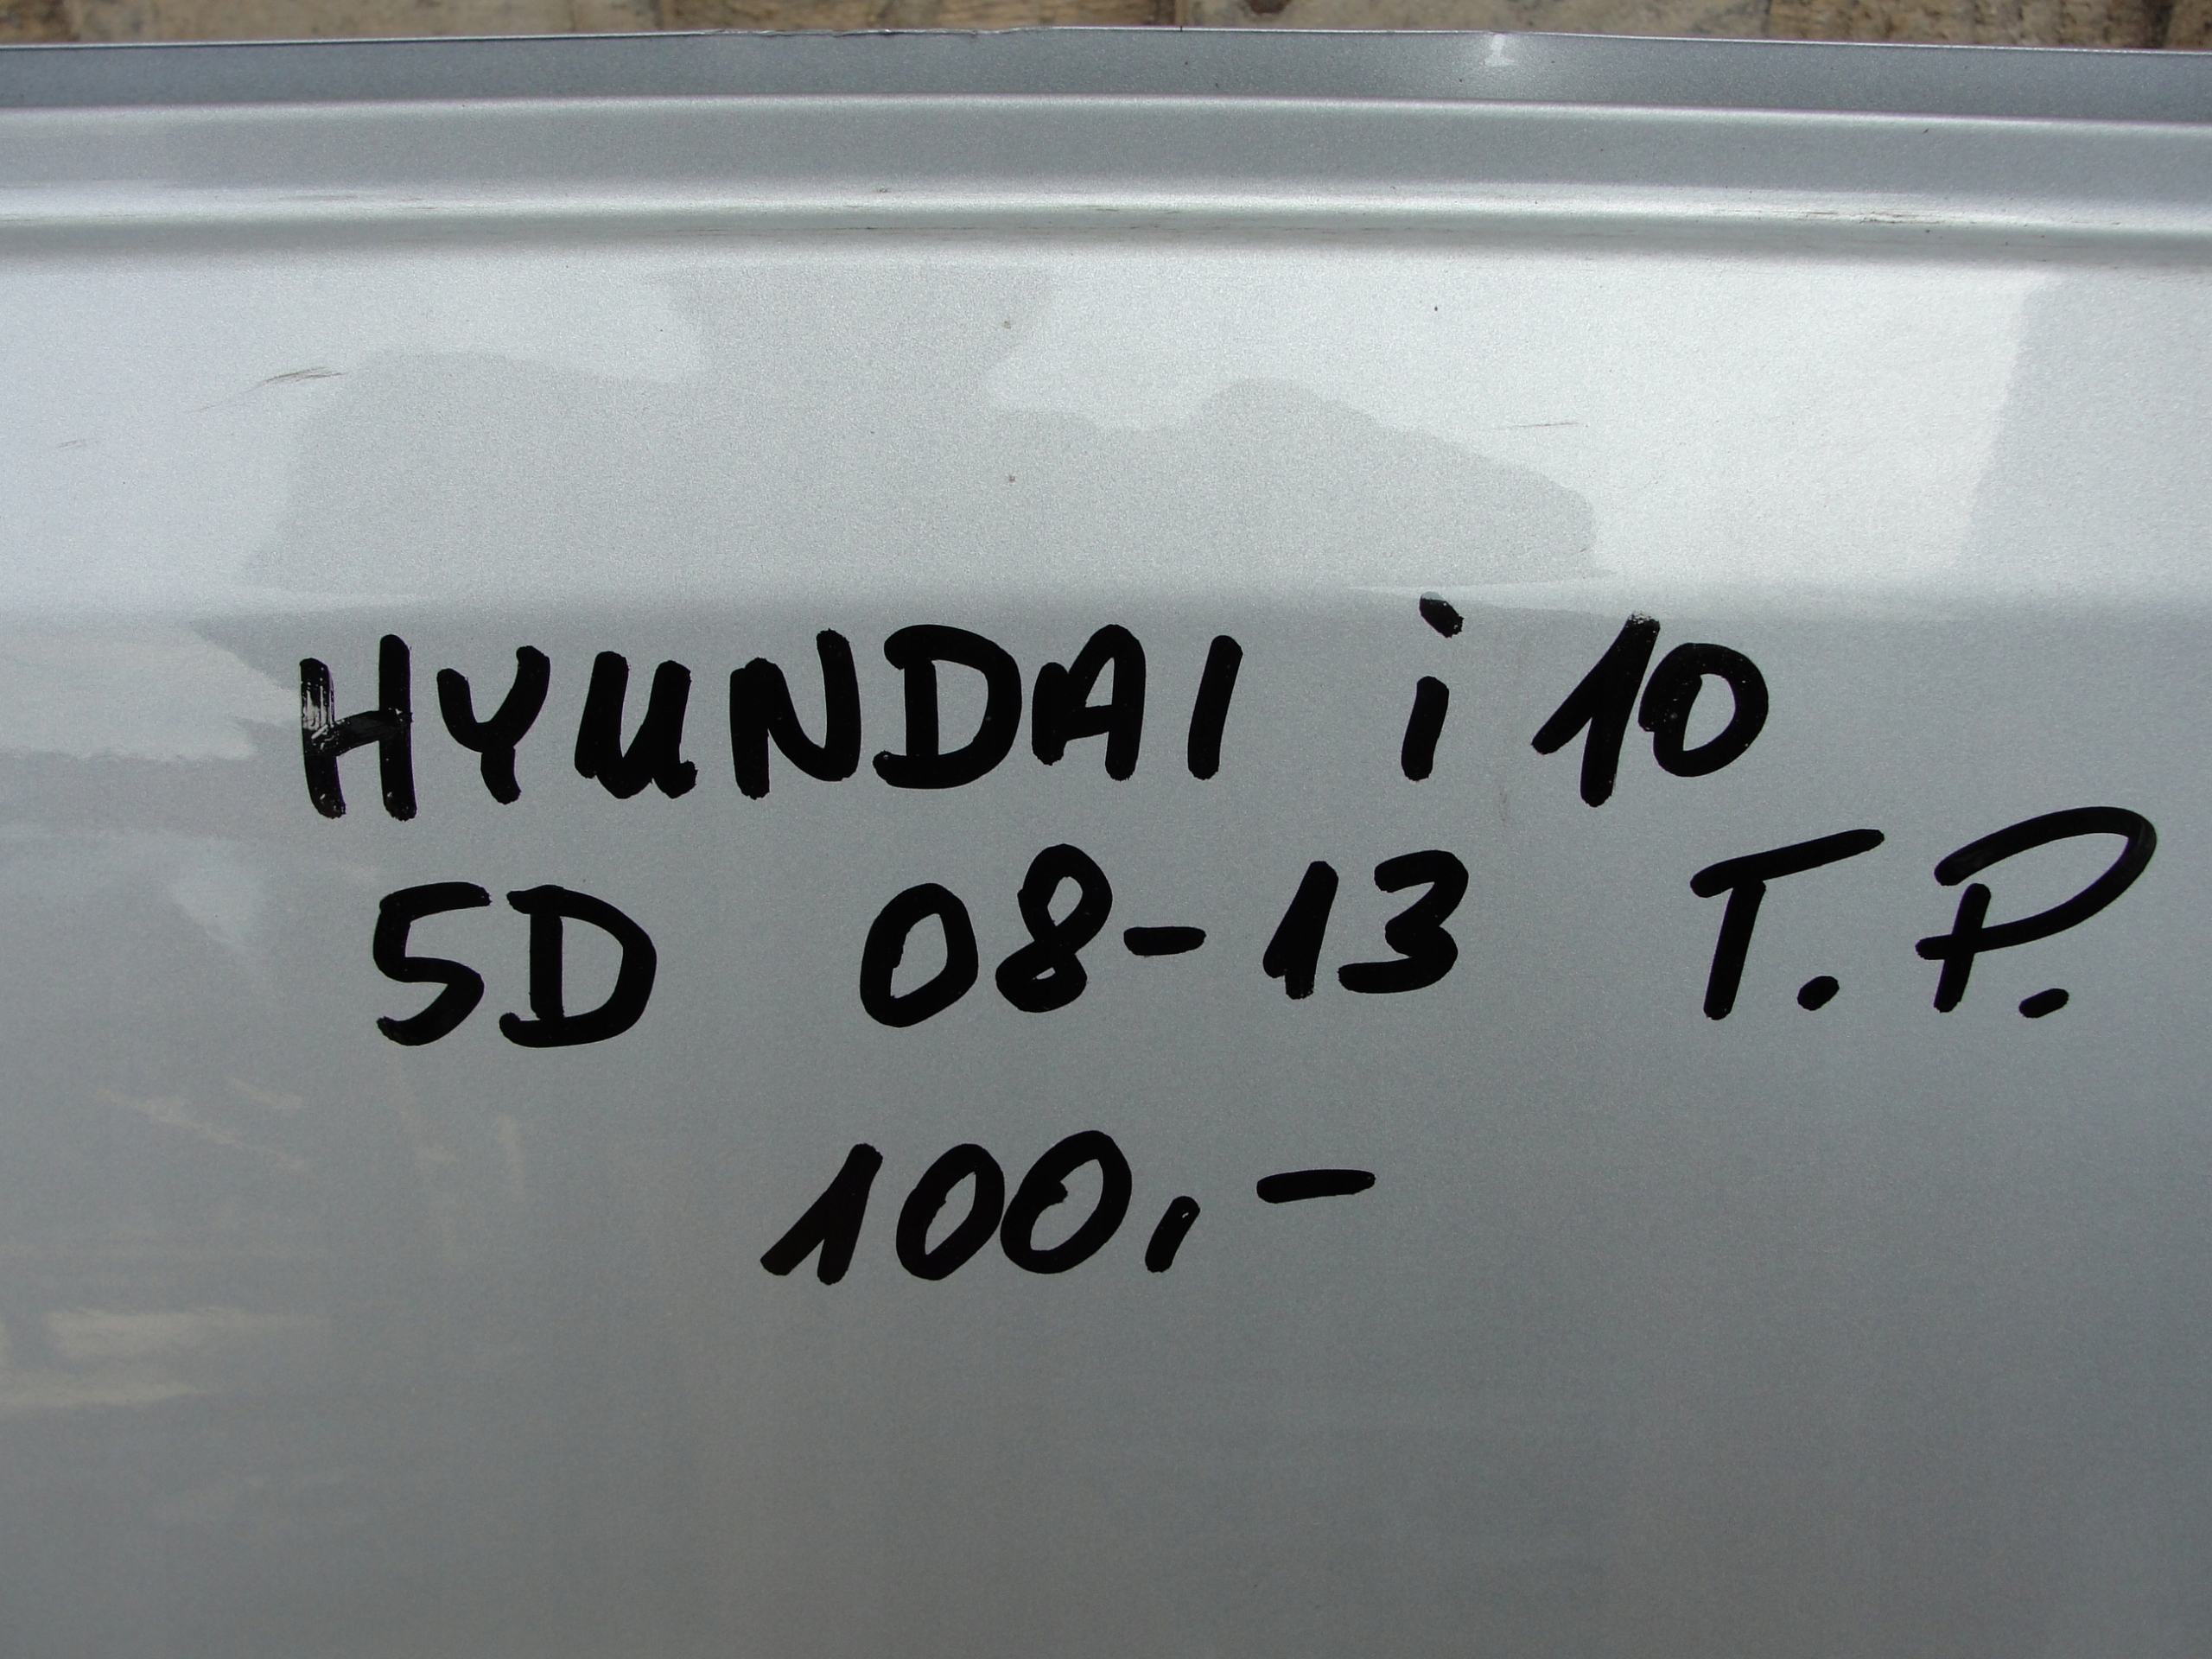 HYUNDAI i10
5D 08-13 T.P.
100,-